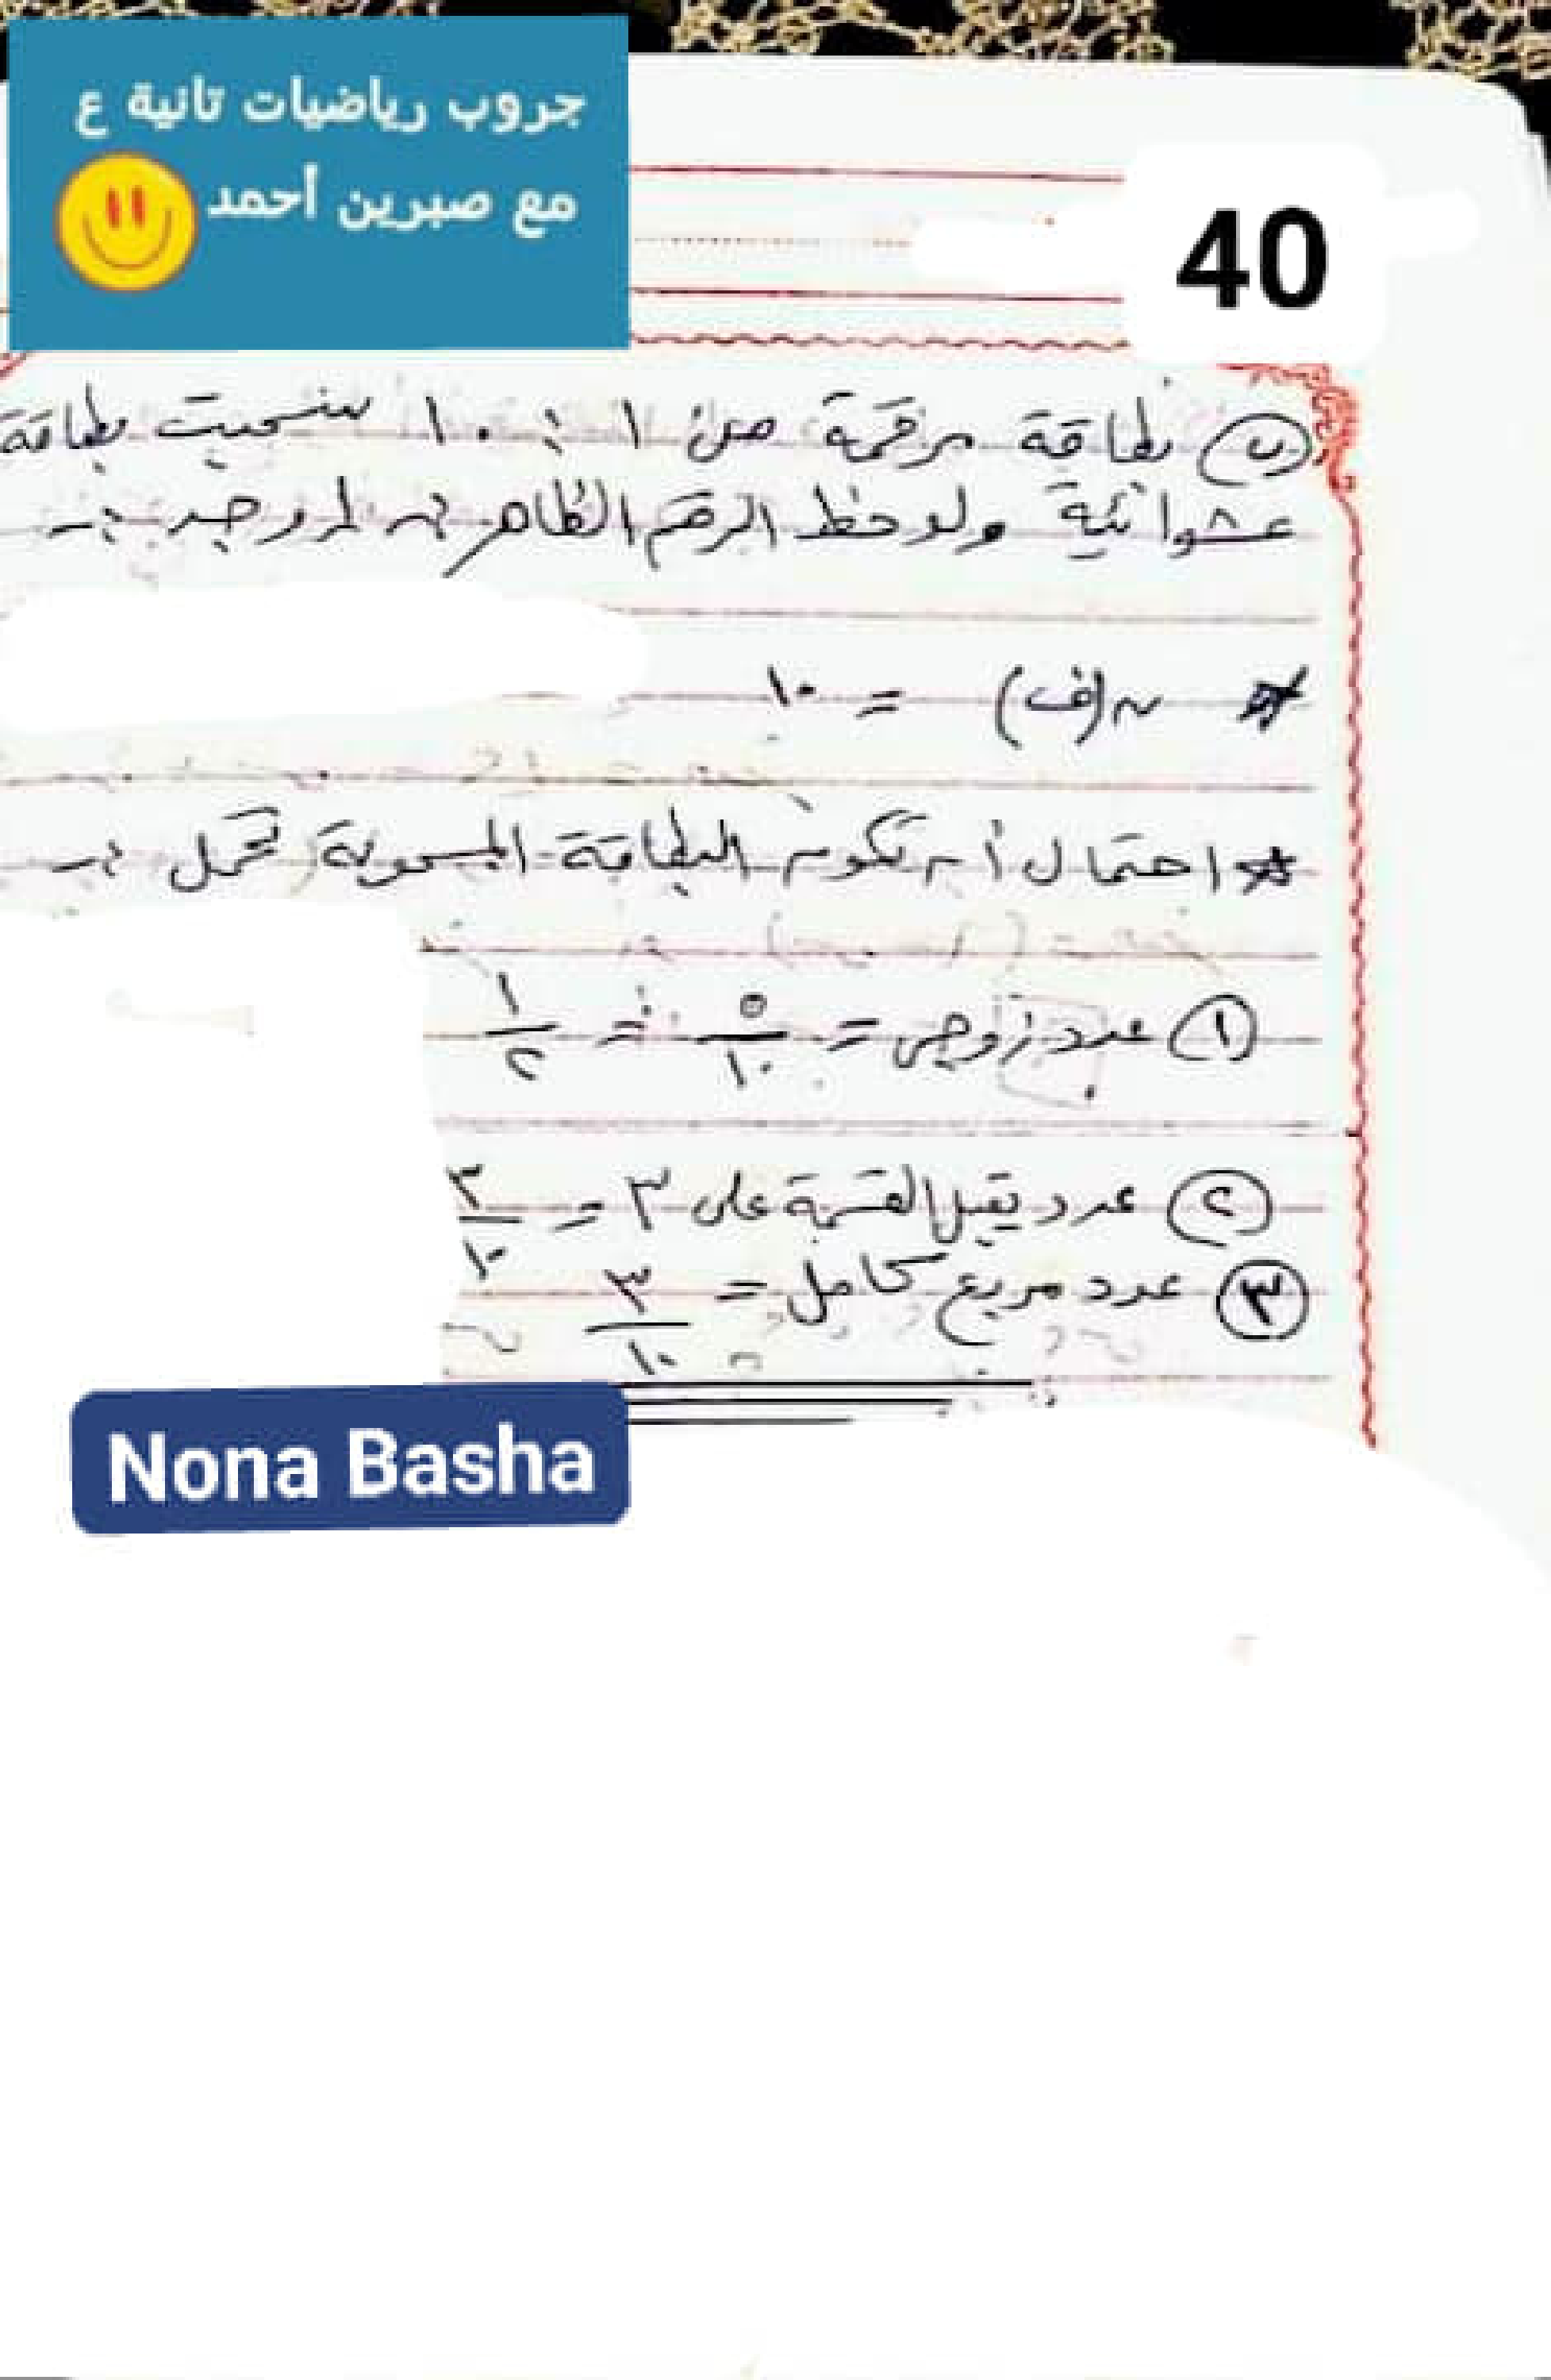 جروب رياضيات تانية ع
مع صبرين أحمد
40
بطاقة مرقمة من ١ : ١٠ سحبت بطاقة
عشوائية ولوحظ الرقم الظاهر أوجد :-
ن(ف) = ١٠
احتمال أن تكون البطاقة المسحوبة تحمل :-
① عدد زوجى = ٥/١٠ = ١/٢
② عدد يقبل القسمة على ٣ = ٣/١٠
③ عدد مربع كامل = ٣/١٠
Nona Basha